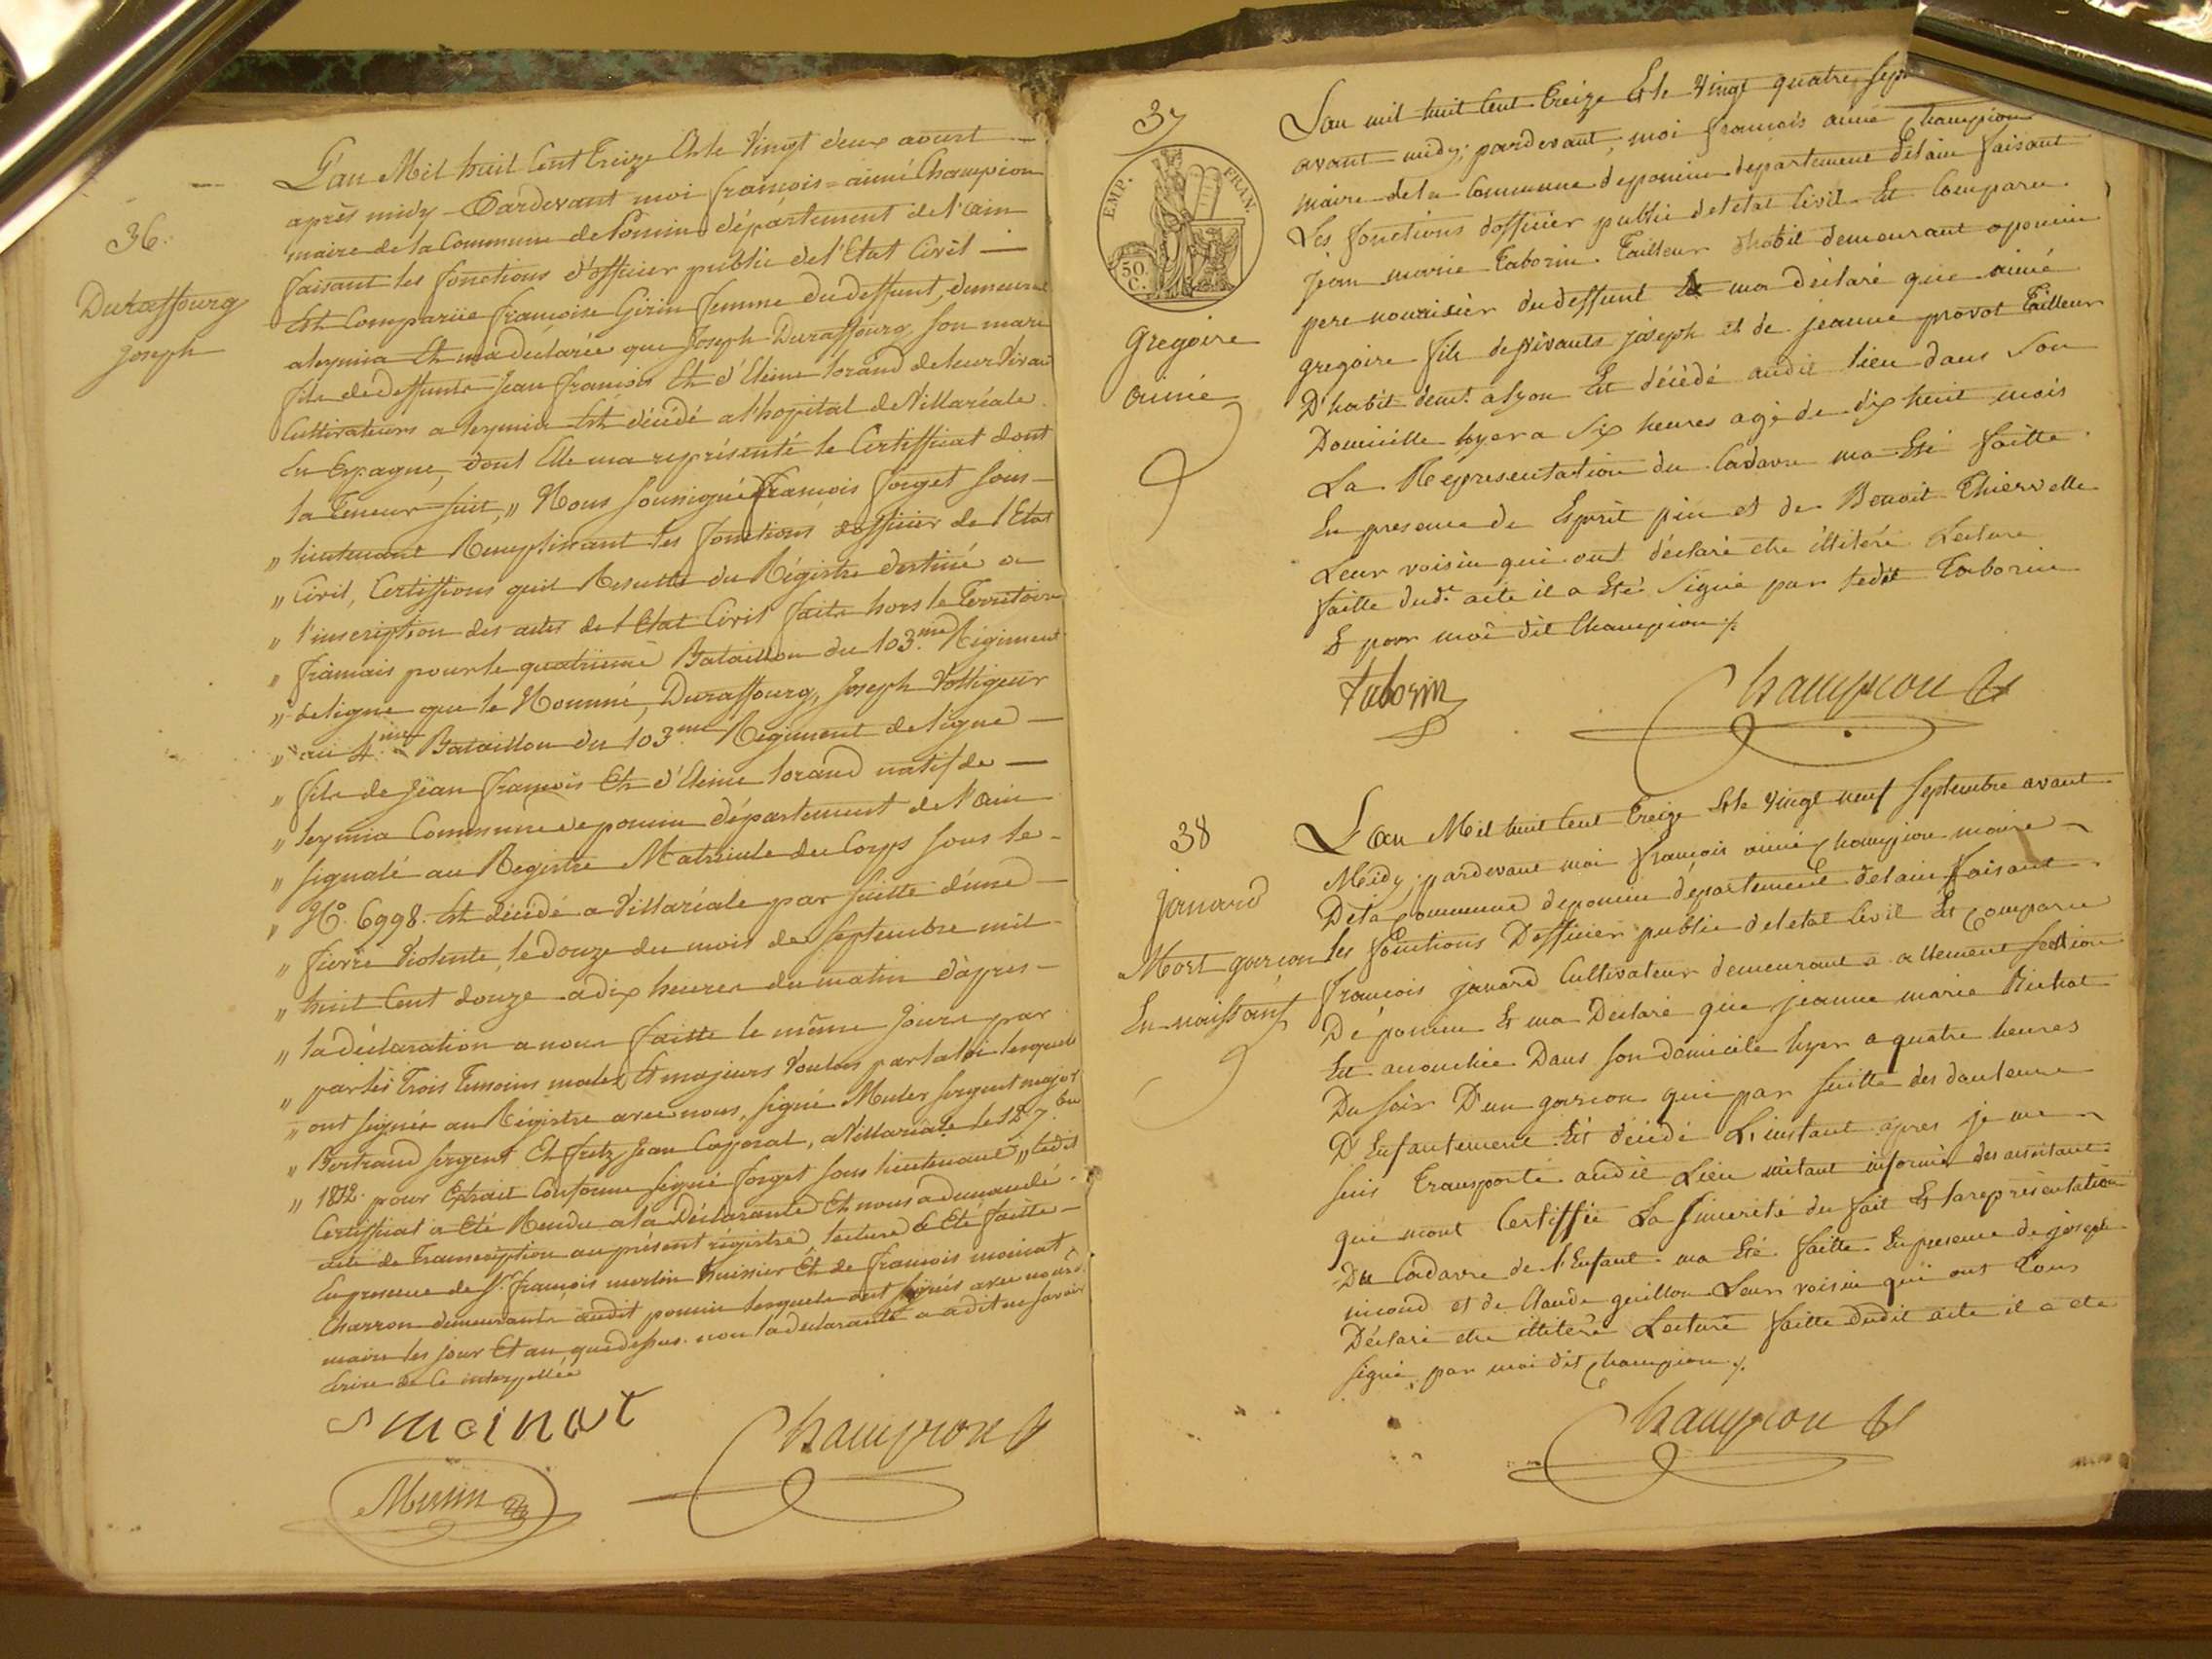 36.
Duraffourg
joseph
L'an Mil huit Cent treize Et le Vingt deux aoust
après midy Pardevant moi françois=aimé Champion
maire de la Commune de Poncin département de l'ain
faisant les fonctions d'officier public de l'Etat Civil
Est Comparüe françoise Girin femme du deffunt, demeurant
a leymia Et m'a declarée que Joseph Duraffourg, son mari
fils de deffunts Jean françois Et d'Eleine lorand de leur vivant
Cultivateurs a leymia Est décédé a l'hopital de Villaréale
En Espagne, dont Elle m'a représenté le Certifficat dont
la teneur suit, „ Nous soussigné françois forget sous
„ lieutenant Remplissant les fonctions d'officier de l'Etat
„ Civil, Certiffions quil Resulte du Régistre destiné a
„ l'inscription des actes de l'Etat Civil faits hors le territoire
„ français pour le quatrieme Bataillon du 103.me Régiment
„ de ligne que le Nommé, Duraffourg, Joseph Voltigeur
„ au 4.me Bataillon du 103.me Régiment de ligne
„ fils de Jean françois Et d'Eleine lorand natif de
„ leymia Commune de poncin département de l'ain
„ signalé au Registre Matricule du Corps sous le
„ N.o 6998. Est décédé a Villaréale par suitte d'une
„ fievre Violente, le douze du mois de septembre mil
„ huit Cent douze a dix heures du matin d'après
„ la déclaration a nous faitte le même jour par
„ par les trois temoins males Et majeurs Voulus par la loi lesquels
„ ont signés au Régistre avec nous, signé Muler sergent major
„ Bertrand sergent Et fritz Jean Caporal, a Villaréale le 12 7.bre
„ 1812. pour Extrait Conforme signé forget sous lieutenant „ ledit
Certifficat a Eté Rendu a la Déclarante Et nous a demandé
acte de transcription au présent registre, lecture a Eté faitte
En presence de S.r françois merlin huissier Et de françois moinat
Charron demeurants audit poncin lesquels ont signés avec nous d.
maire les jour Et an que dessus. non la declarante a a dit ne savoir
Ecrire de Ce interpellée
moinat
Champion
Merlin
37
EMP. FRAN.
50. C.
Gregoire
aimé
L'an mil huit Cent treize Et le vingt quatre
avant midy; pardevant, moi françois aimé Champion
maire de la Commune de poncin departement de l'ain faisant
Les fonctions d'officier public de l'etat Civil Est Comparu
jean marie taborin tailleur d'habit demeurant a poncin
pere nourisier du deffunt Et m'a déclaré que aimé
gregoire fils de vivants joseph et de jeanne provot tailleur
D'habit dem.t a lyon Est décédé audit lieu dans son
Domicille hyer a six heures agé de dix huit mois
La Représentation du Cadavre m'a Eté faitte
En presence de Esprit pin et de Benoit Thiervelle
Leur voisin qui ont déclaré etre illitéré Lecture
faitte dud.t acte il a Eté Signé par ledit taborin
& par moi dit Champion ./.
taborin
Champion
38
janard
Mort garçon
En naissant
L'an Mil huit Cent treize Et le vingt neuf Septembre avant
Midy; pardevant moi françois aimé Champion maire
De la Commune de poncin département de l'ain faisant
les fonctions D'officier public de l'etat Civil Est Comparu
françois janard Cultivateur demeurant a allement section
De poncin & m'a Déclaré que jeanne marie Richat
Est accouchée Dans son domicile hyer a quatre heures
Du soir D'un garçon qui par suitte des douleurs
D'Enfantement Est décédé L'instant apres je me
suis transporté audit Lieu m'étant informé des assistant
qui m'ont Certiffié La sincérité du fait Et la représentation
Du Cadavre de l'Enfant m'a Eté faitte En presence de joseph
nicoud et de Claude guillon Leur voisin qui ont tous
Déclaré etre illitéré Lecture faitte dudit acte il a été
signé par moi dit Champion ./.
Champion